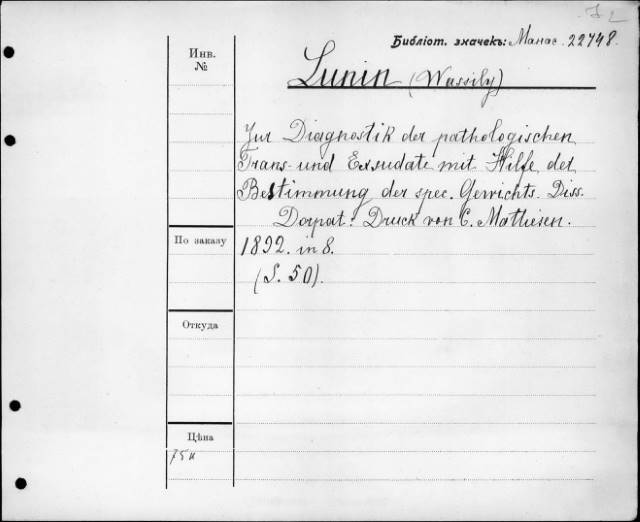 Библіот. значекъ: Манас. 22748.
Инв.
№
Lunin (Wassily)
Zur Diagnostik der pathologischen
Trans- und Exsudate mit Hilfe der
Bestimmung der spec. Gewichts. Diss.
Dorpat. Druck von C. Mathiesen.
По заказу
1892. in 8.
(S. 50).
Откуда
Цѣна
75к